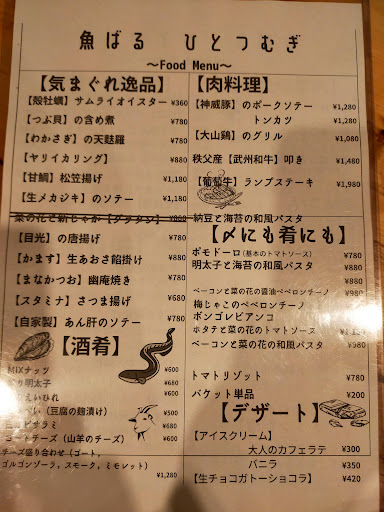 魚ばる ひとつむぎ
〜Food Menu〜
【気まぐれ逸品】
【殻牡蠣】サムライオイスター ¥360
【つぶ貝】の含め煮 ¥780
【わかさぎ】の天麩羅 ¥780
【ヤリイカリング】 ¥880
【甘鯛】松笠揚げ ¥1,180
【生メカジキ】のソテー ¥1,180
菜の花と新じゃが【グラタン】 ¥880
【目光】の唐揚げ ¥780
【かます】生あおさ餡掛け ¥880
【まなかつお】幽庵焼き ¥780
【スタミナ】さつま揚げ ¥680
【自家製】あん肝のソテー ¥780
【酒肴】
MIXナッツ ¥600
り明太子 ¥680
えいひれ ¥600
い（豆腐の麹漬け） ¥500
ピザラミ ¥680
ゴートチーズ（山羊のチーズ） ¥600
チーズ盛り合わせ（ゴート，
ゴルゴンゾーラ，スモーク，ミモレット）
¥1,280
【肉料理】
【神威豚】のポークソテー ¥1,280
トンカツ ¥1,280
【大山鶏】のグリル ¥1,080
秩父産【武州和牛】叩き ¥1,480
【葡萄牛】ランプステーキ
¥1,980
納豆と海苔の和風パスタ
【〆にも肴にも】 ¥780
ポモドーロ（基本のトマトソース） ¥880
明太子と海苔の和風パスタ ¥880
¥780
ベーコンと菜の花の醤油ペペロンチーノ ¥980
梅じゃこのペペロンチーノ
ボンゴレビアンコ
ホタテと菜の花のトマトソース
ベーコンと菜の花の和風パスタ ¥980
トマトリゾット ¥780
バケット単品 ¥200
【デザート】
【アイスクリーム】
大人のカフェラテ ¥300
バニラ ¥350
【生チョコガトーショコラ】 ¥420